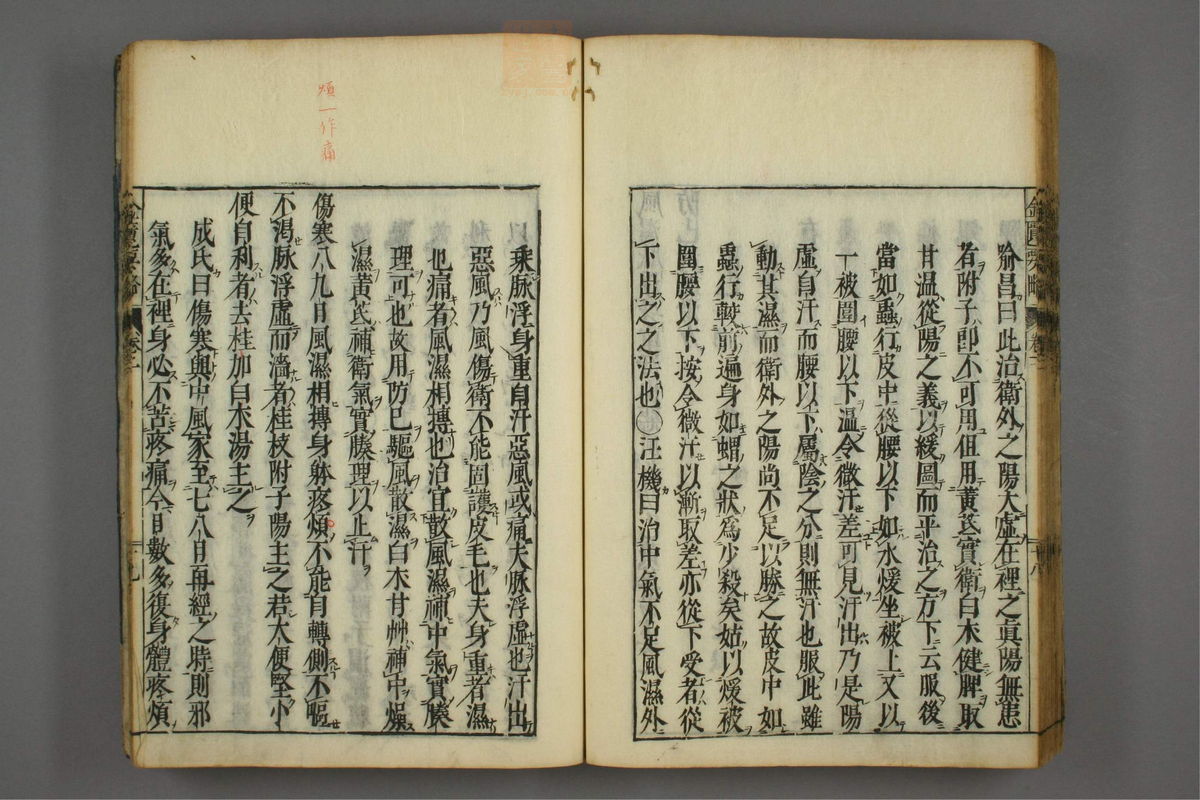 喻昌曰此治衛外之陽大虛在裡之眞陽無恙
者附子卽不可用但用黃芪實衛白朮健脾取
甘溫從陽之義以緩圖而平治之方下云服後
當如蟲行皮中從腰以下如氷煖坐被上又以
一被圍腰以下溫令微汗差可見汗出乃是陽
虛自汗而腰以下屬陰之分則無汗也服此雖
動其濕而衛外之陽尚不足以勝之故皮中如
蟲行較前遍身如蝟之狀爲少殺矣姑以煖被
圍腰以下按令微汗以漸取差亦從下受者從
下出之之法也 汪機曰治中氣不足風濕外
乘脉浮身重自汗惡風或痛夫脉浮虛也汗出
惡風乃風傷衛不能固護皮毛也夫身重者濕
也痛者風濕相搏也治宜散風濕補中氣實腠
理可也故用防已驅風散濕白朮甘艸補中燥
濕黃芪補衛氣實腠理以止汗
傷寒八九日風濕相搏身躰疼煩不能自轉側不嘔
不渴脉浮虛而濇者桂枝附子陽主之若大便堅小
便自利者去桂加白朮湯主之
成氏曰傷寒與中風家至七八日再經之時則邪
氣多在裡身必不苦疼痛今日數多復身體疼煩
煩一作痛
金匱要略
卷二
十八
十九